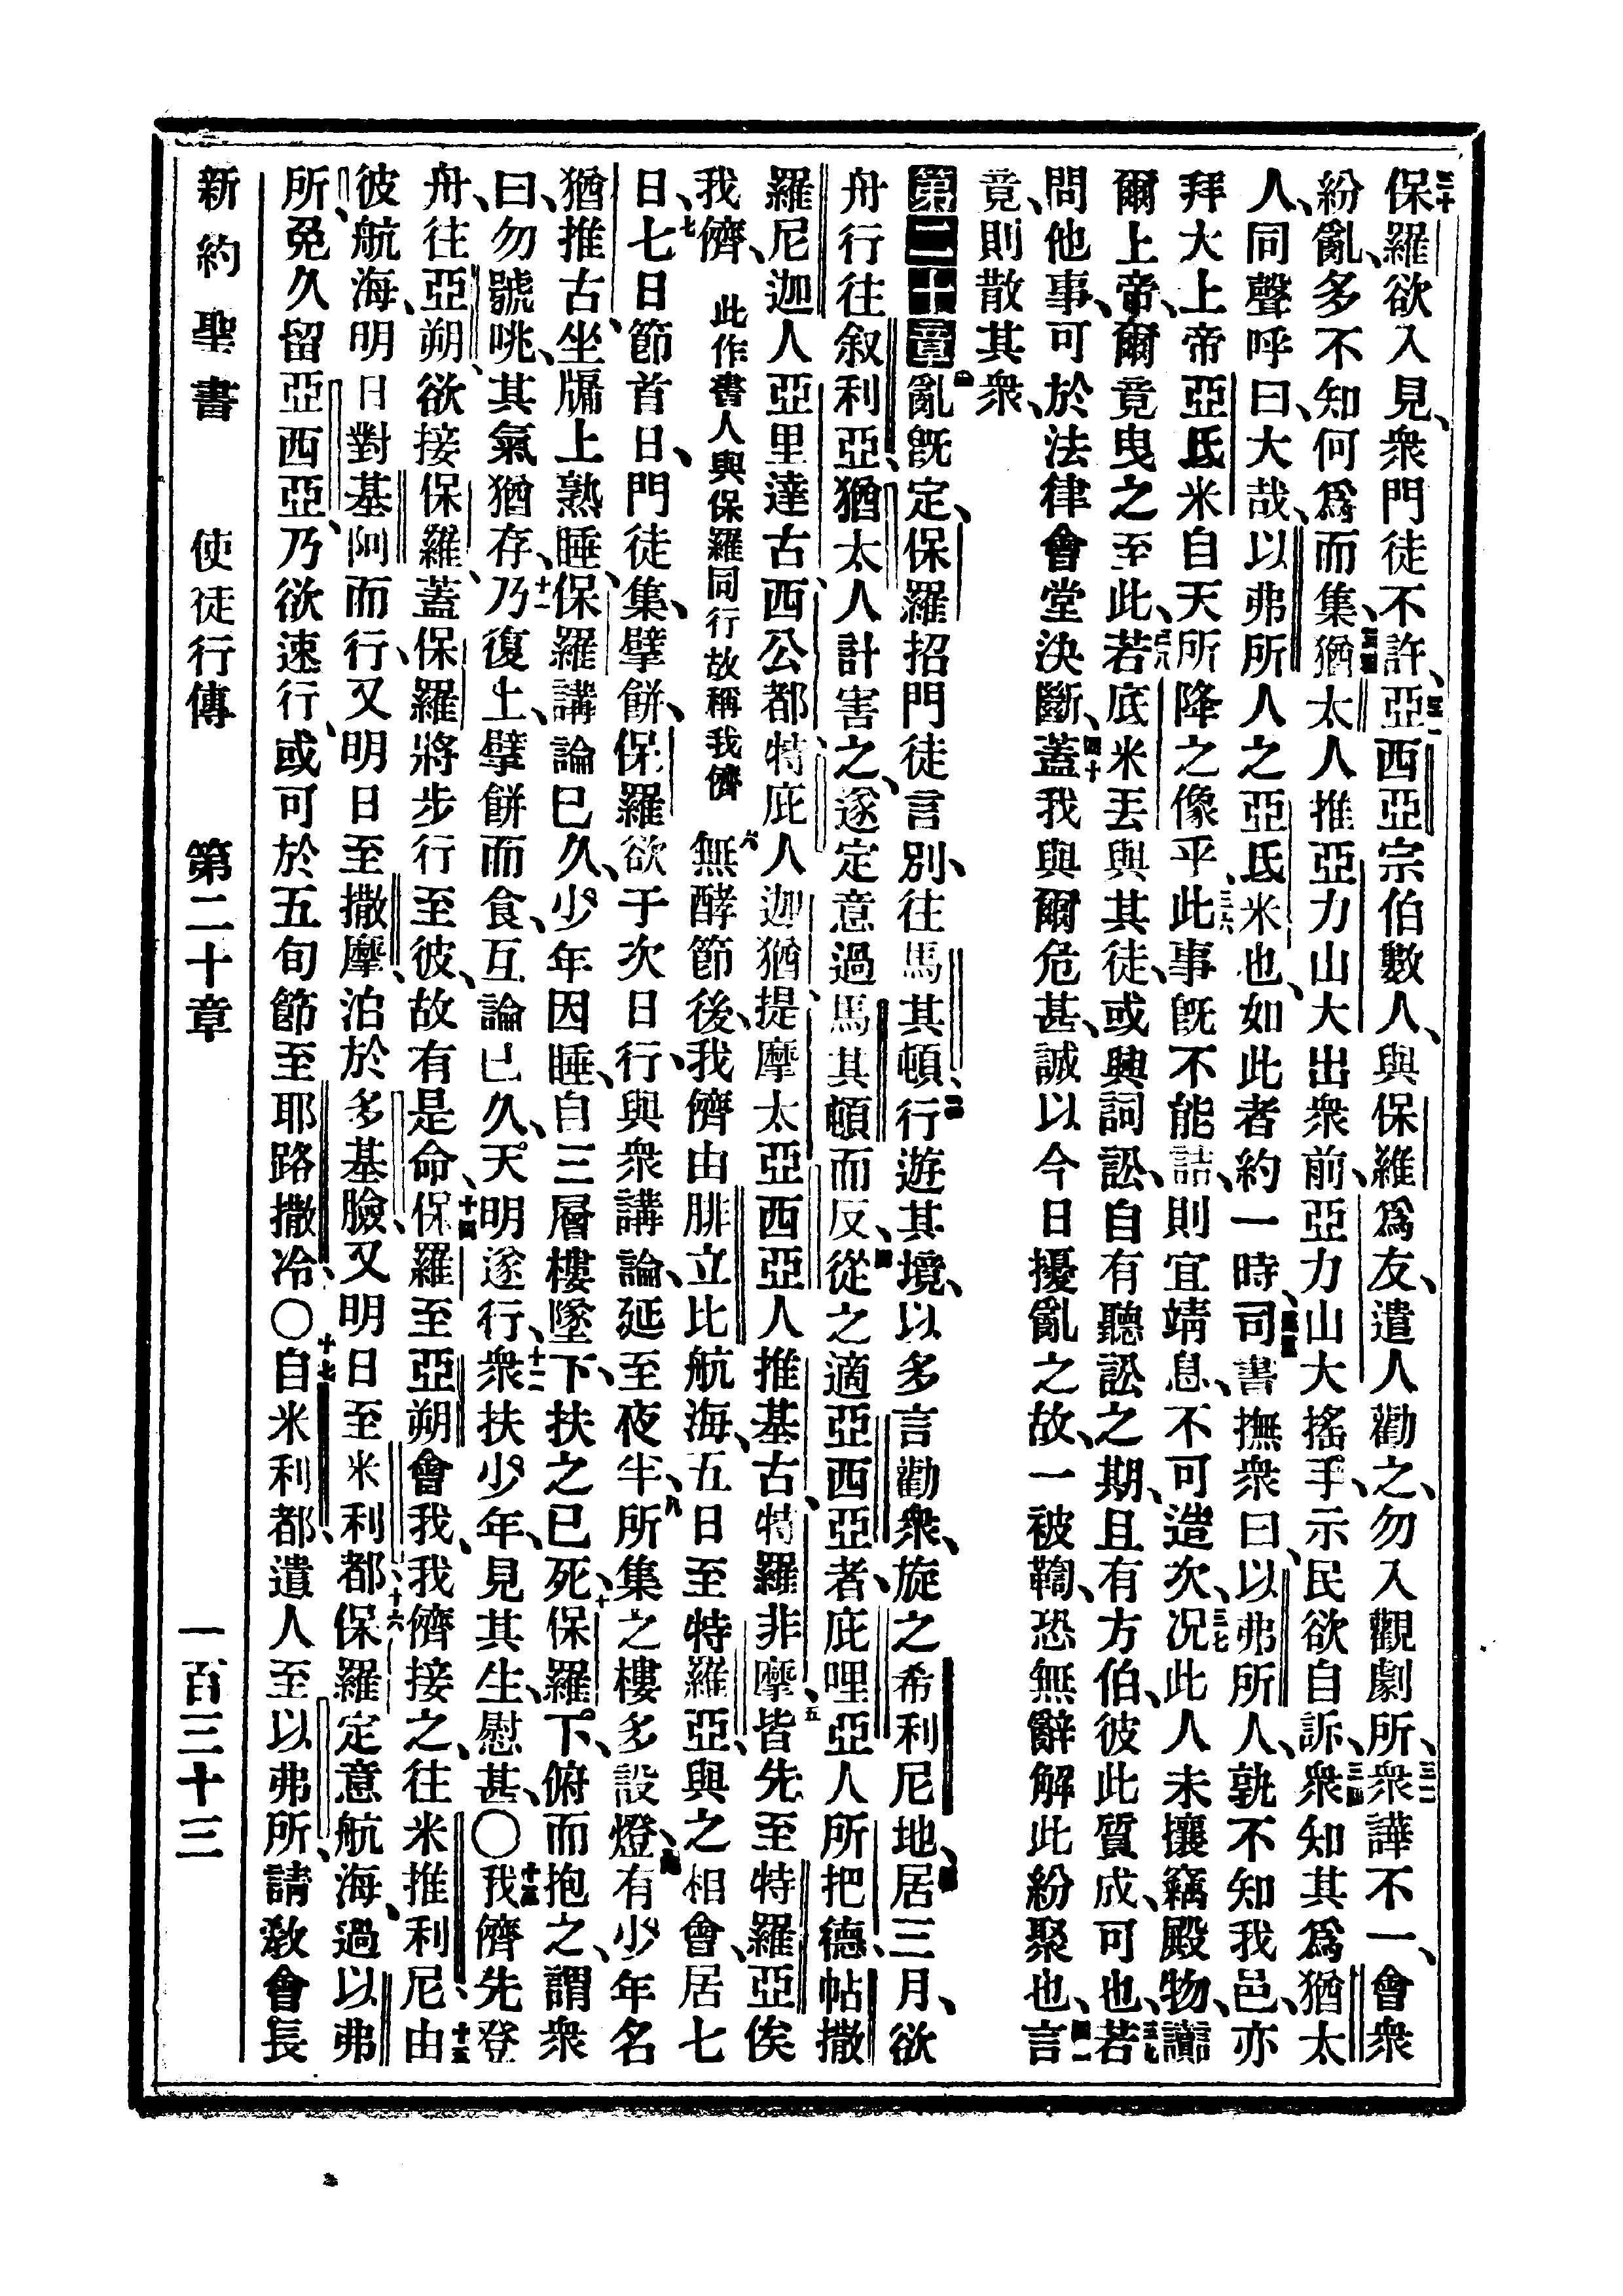 保羅欲入見、衆門徒不許、亞西亞宗伯數人、與保羅爲友、遣人勸之、勿入觀劇所、衆譁不一、會衆
紛亂、多不知何爲而集、猶太人推亞力山大出衆前、亞力山大搖手、示民欲自訴、衆知其爲猶太
人、同聲呼曰、大哉、以弗所人之亞氐米也、如此者約一時、司書撫衆曰、以弗所人、孰不知我邑、亦
拜大上帝亞氐米自天所降之像乎、此事旣不能詰、則宜靖息、不可造次、况此人未攘竊殿物、讟
爾上帝、爾竟曳之至此、若底米丟與其徒、或興詞訟、自有聽訟之期、且有方伯、彼此質成、可也、若
問他事、可於法律會堂決斷、蓋我與爾危甚、誠以今日擾亂之故、一被鞫、恐無辭解此紛聚也、言
竟、則散其衆、
第二十章亂旣定、保羅招門徒言別、往馬其頓、行遊其境、以多言勸衆、旋之希利尼地、居三月、欲
舟行往叙利亞、猶太人計害之、遂定意過馬其頓而反、從之適亞西亞者、庇哩亞人所把德、帖撒
羅尼迦人亞里達古、西公都、特庇人迦猶、提摩太、亞西亞人推基古、特羅非摩、皆先至特羅亞俟
我儕、此作書人與保羅同行故稱我儕無酵節後、我儕由腓立比航海、五日至特羅亞、與之相會、居七
日、七日節首日、門徒集、擘餅、保羅欲于次日行、與衆講論、延至夜半、所集之樓多設燈、有少年名
猶推古、坐牖上熟睡、保羅講論已久、少年因睡、自三層樓墜下、扶之已死、保羅下、俯而抱之、謂衆
曰、勿號咷、其氣猶存、乃復上、擘餅而食、互論已久、天明遂行、衆扶少年、見其生、慰甚、〇我儕先登
舟、往亞朔、欲接保羅、蓋保羅將步行至彼、故有是命、保羅至亞朔會我、我儕接之、往米推利尼、由
彼航海、明日對基阿而行、又明日至撒摩、泊於多基臉、又明日至米利都、保羅定意航海、過以弗
所、免久留亞西亞、乃欲速行、或可於五旬節至耶路撒冷、〇自米利都、遣人至以弗所、請敎會長
新約聖書 使徒行傳 第二十章 一百三十三